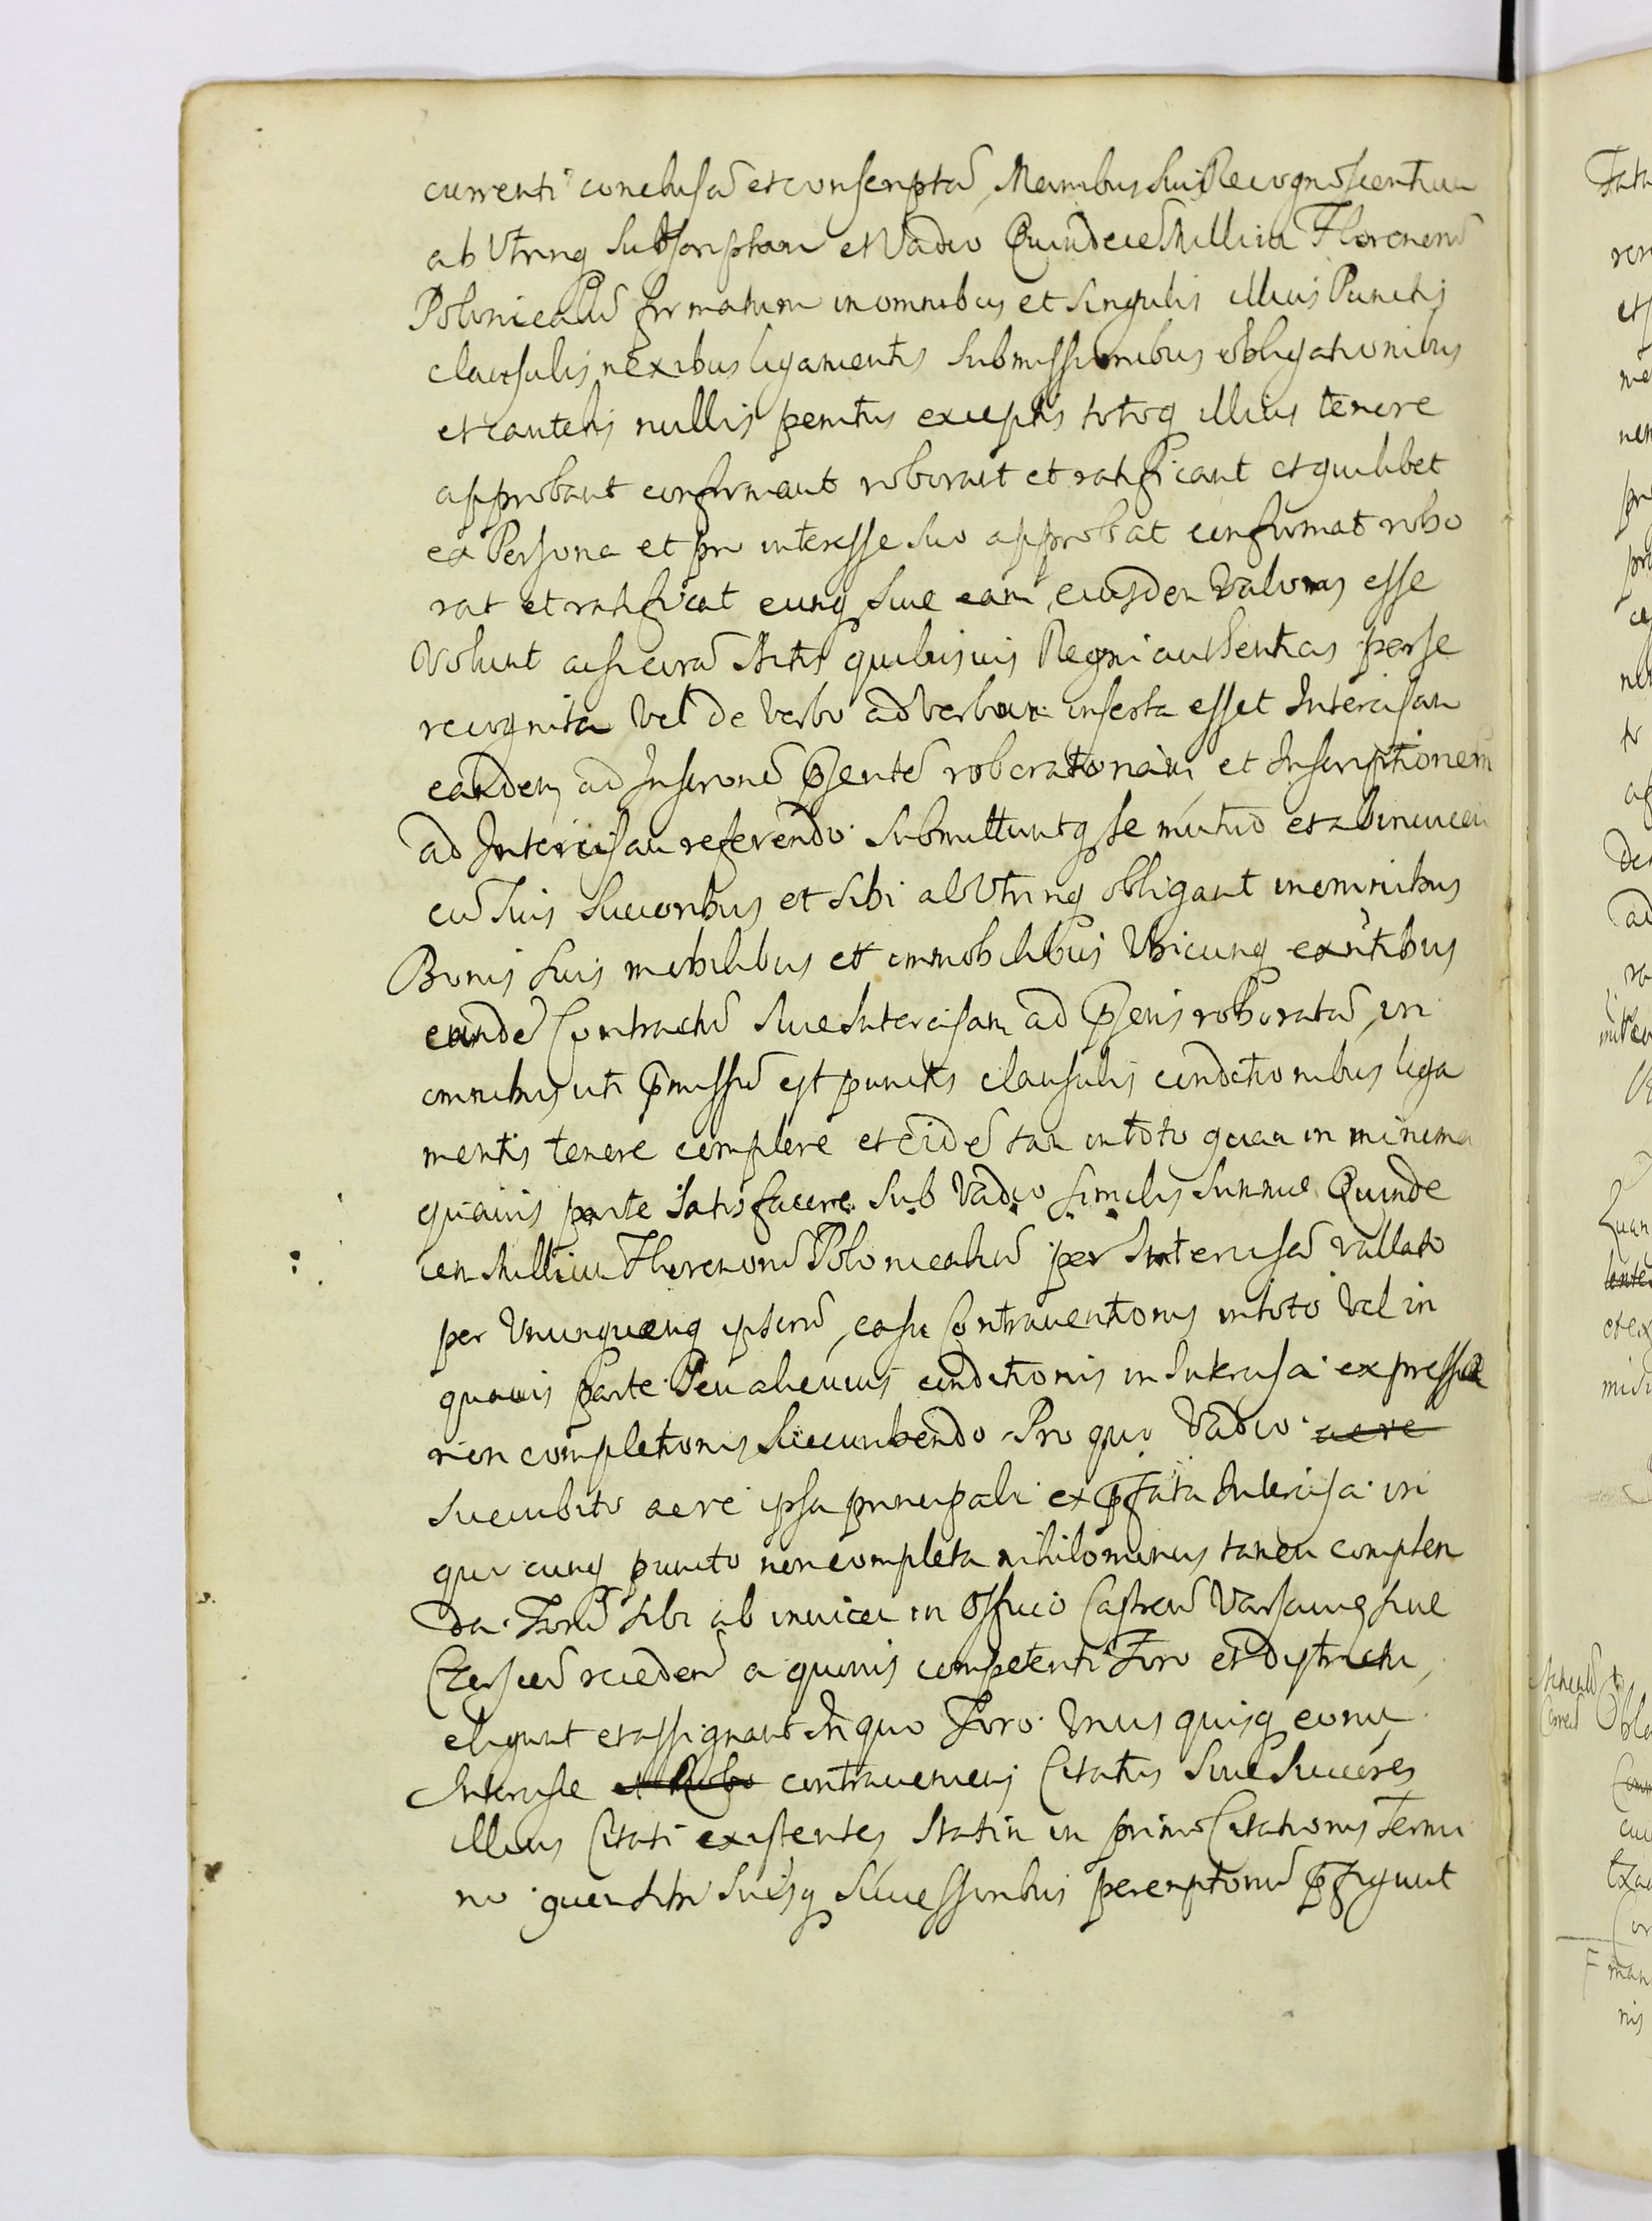 currenti conclusã et conscriptã, Manibus Sui Recognoscentium
ab Vtrinq subscriptam et Vadio Quindecẽ Millium Florenorũ
Polonicaliũ firmatum in omnibus et singulis illius Punctis
clausulis nexibus ligamentis submissionibus obligationibus
et cautelis nullis penitus exceptis totoq illius tenore
approbant confirmant roborant et ratificant et quilibet
ex Persona et pro interesse suo approbat confirmat robo
rat et ratificat eunq siue eam eiusdem Valoris esse
Volunt acsi corã Actis quibusuis Regni authenticis per se
recognita Vel de verbo ad verbum inserta esset Intercisam
eandem ad Inscronẽ p̃sentẽ roboratoriam et Inscriptionem
ad Intercisam referendo. Submittuntq se mutuo et ab inuicem
cũ suis Succoribus et sibi ab Vtrinq obligant in omnibus
Bonis suis mobilibus et immobilibus Vbicunq exñtibus
eundẽ Contractũ siue Intercisam ad p̃sens roboratã, in
omnibus uti p̃missũ est punctis clausulis conditionibus liga
mentis tenere complere et eidẽ tam in toto quam in minima
quauis parte satisfacere. Sub Vadio similis summæ Quinde
cem Millium Florenorũ Polonicaliũ per Intercisã vallato
per Vnumquemq ipsorũ, casu Contrauentionis in toto Vel in
quauis Parte. Seu alicuius conditionis in Intercisa expressæ
non completionis succumbendo. Pro quo Vadio aere
succubito aere ipsa principali ex p̃fata Intercisa in
quocunq puncto non completa nihilominus tamen complen
da. Forũ sibi ab inuicem in Officio Castren̄ Varsauien̄ siue
Cerscen̄ receden̄ a quouis competenti Foro et dystrictu,
eligunt et assignant In quo Foro. Vnus quisq eorum
Intercisæ contraueniens Citatus siue Succores
illius Citati existentes statim in primo Citationis Termi
no quem sibi suisq Successoribus peremptoriũ p̃figunt